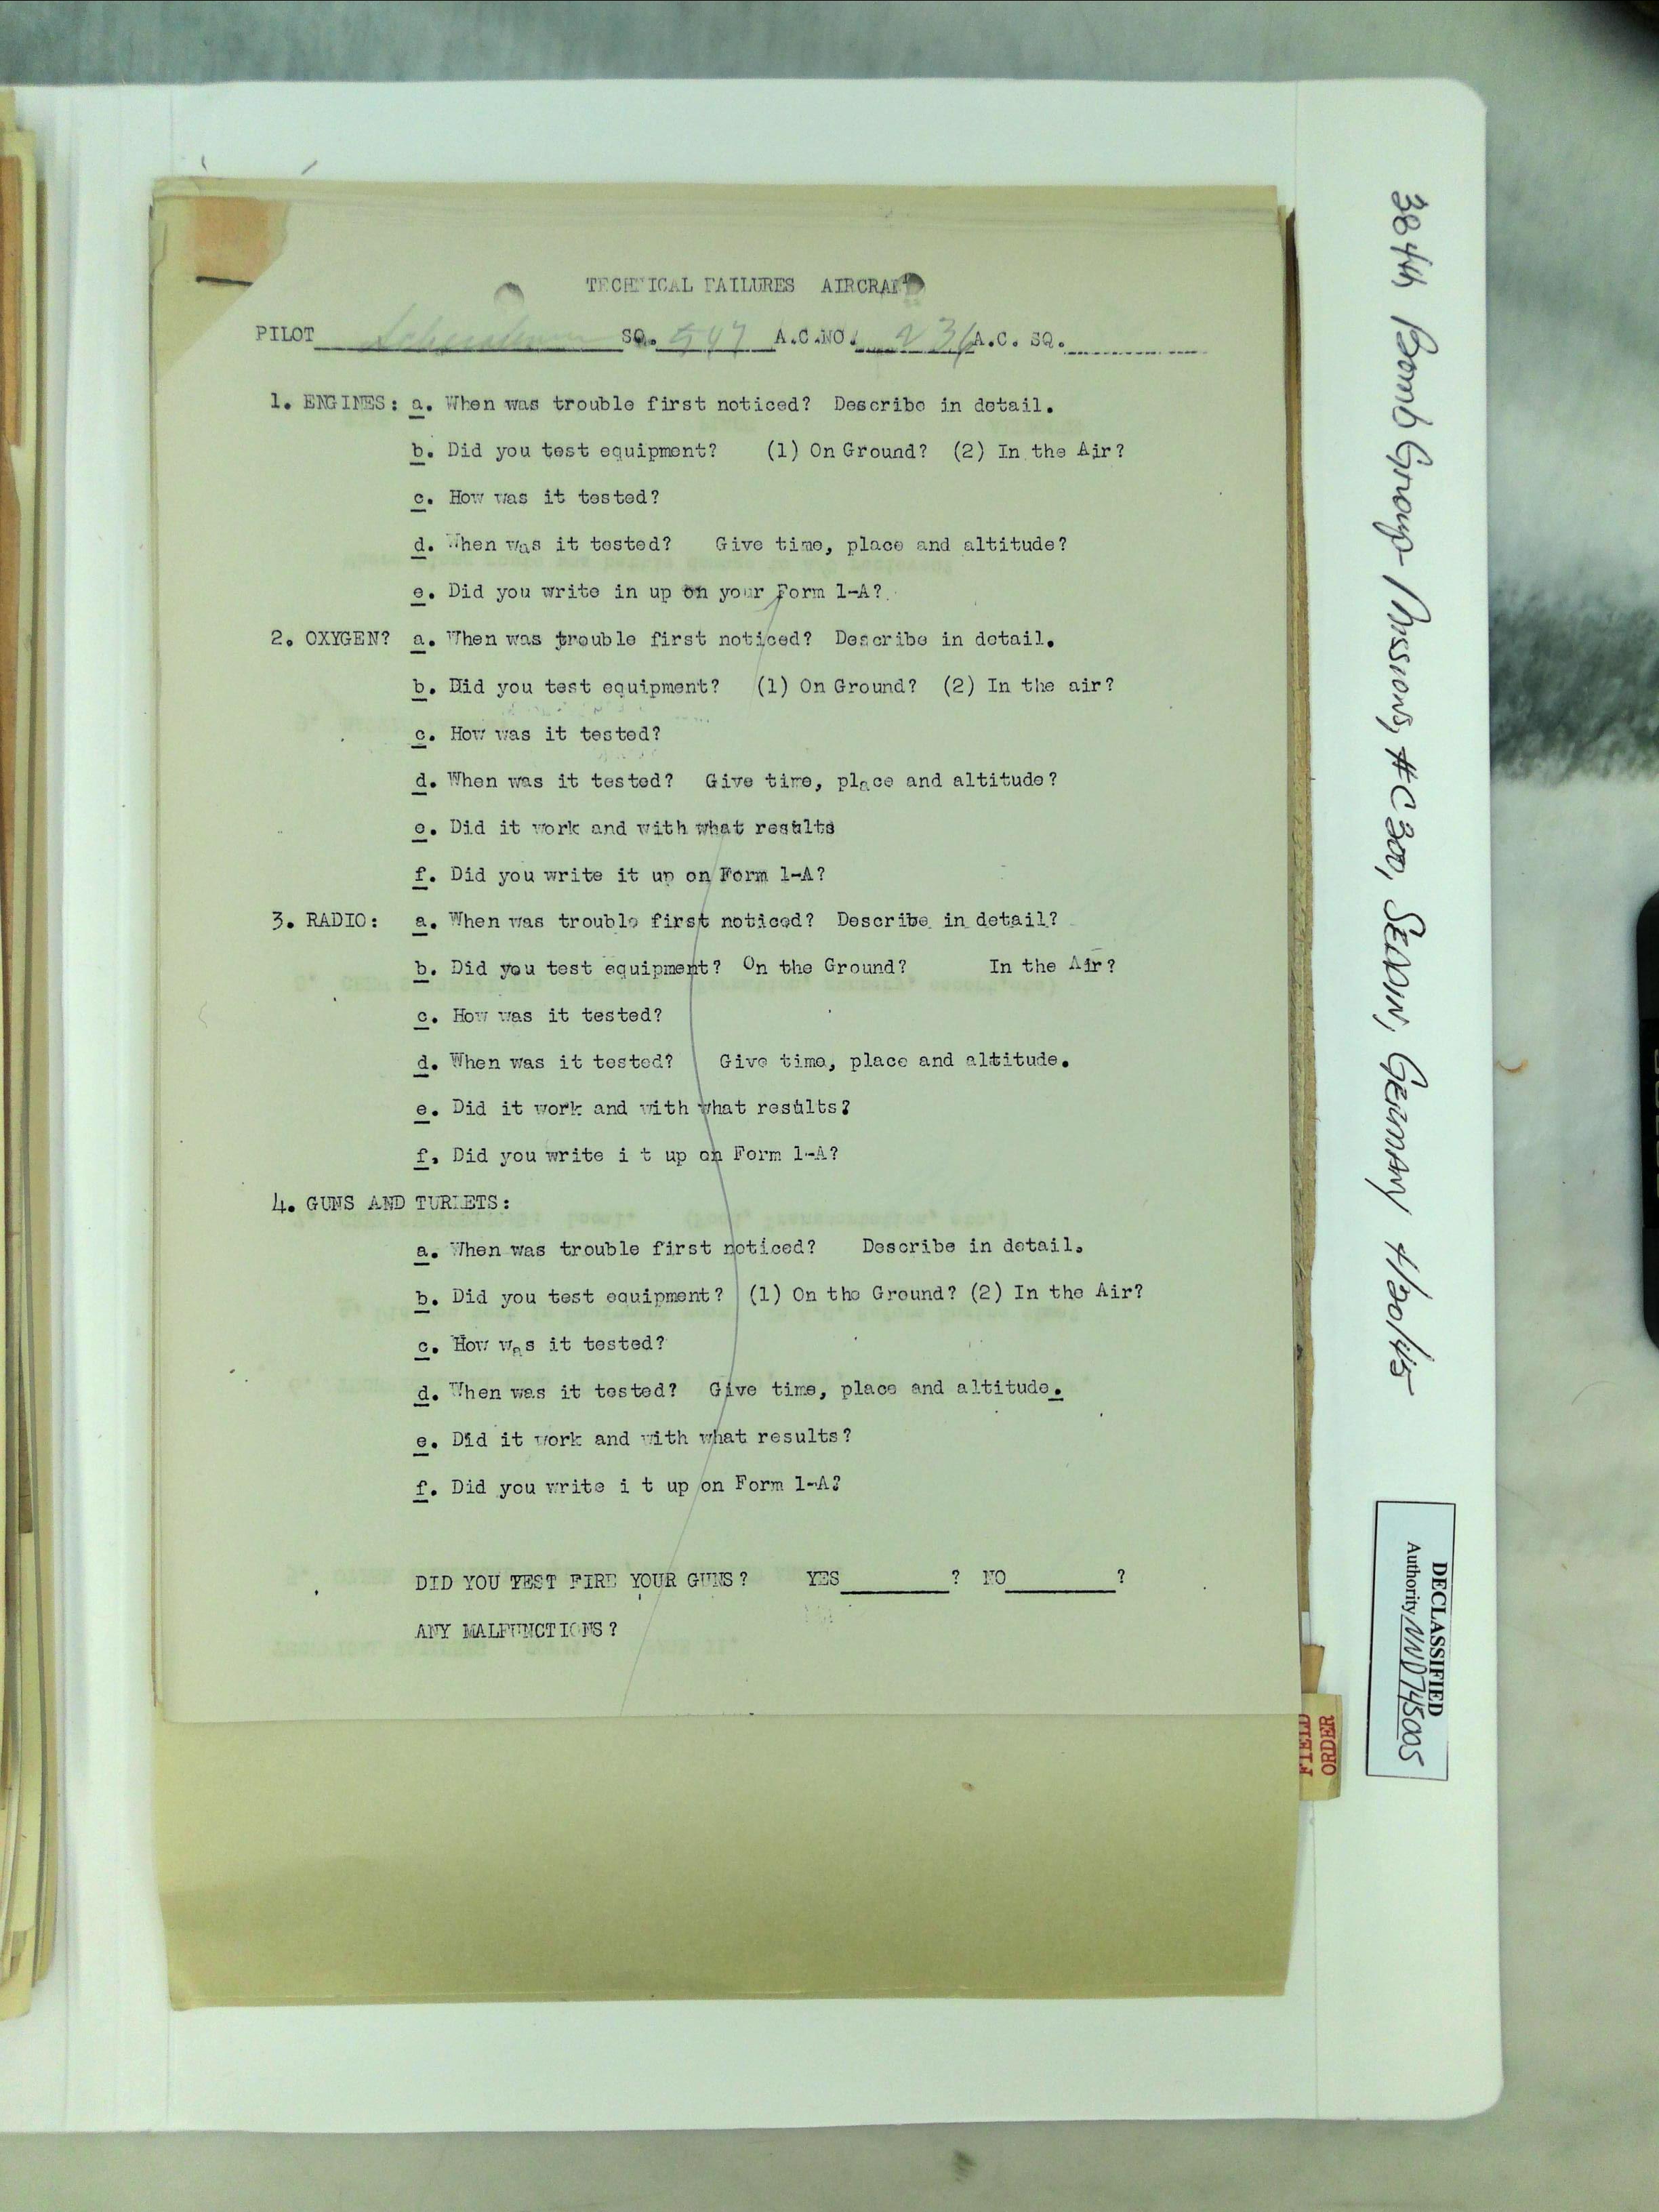 TECHNICAL FAILURES AIRCRAFT
PILOT SQ. 547 A.C.NO. 236 A.C. SQ.
1. ENGINES: a. When was trouble first noticed? Describe in detail.
b. Did you test equipment? (1) On Ground? (2) In the Air?
c. How was it tested?
d. When was it tested? Give time, place and altitude?
e. Did you write in up on your Form 1-A?
2. OXYGEN? a. When was trouble first noticed? Describe in detail.
b. Did you test equipment? (1) On Ground? (2) In the air?
c. How was it tested?
d. When was it tested? Give time, place and altitude?
e. Did it work and with what results
f. Did you write it up on Form 1-A?
3. RADIO: a. When was trouble first noticed? Describe in detail?
b. Did you test equipment? On the Ground? In the Air?
c. How was it tested?
d. When was it tested? Give time, place and altitude.
e. Did it work and with what results?
f. Did you write i t up on Form 1-A?
4. GUNS AND TURLETS:
a. When was trouble first noticed? Describe in detail.
b. Did you test equipment? (1) On the Ground? (2) In the Air?
c. How was it tested?
d. When was it tested? Give time, place and altitude.
e. Did it work and with what results?
f. Did you write i t up on Form 1-A?
DID YOU TEST FIRE YOUR GUNS? YES ? NO ?
ANY MALFUNCTIONS?
FIELD
ORDER
384th Bomb Group - Missions, #C300, Germany 4/20/45
DECLASSIFIED
Authority NND745005